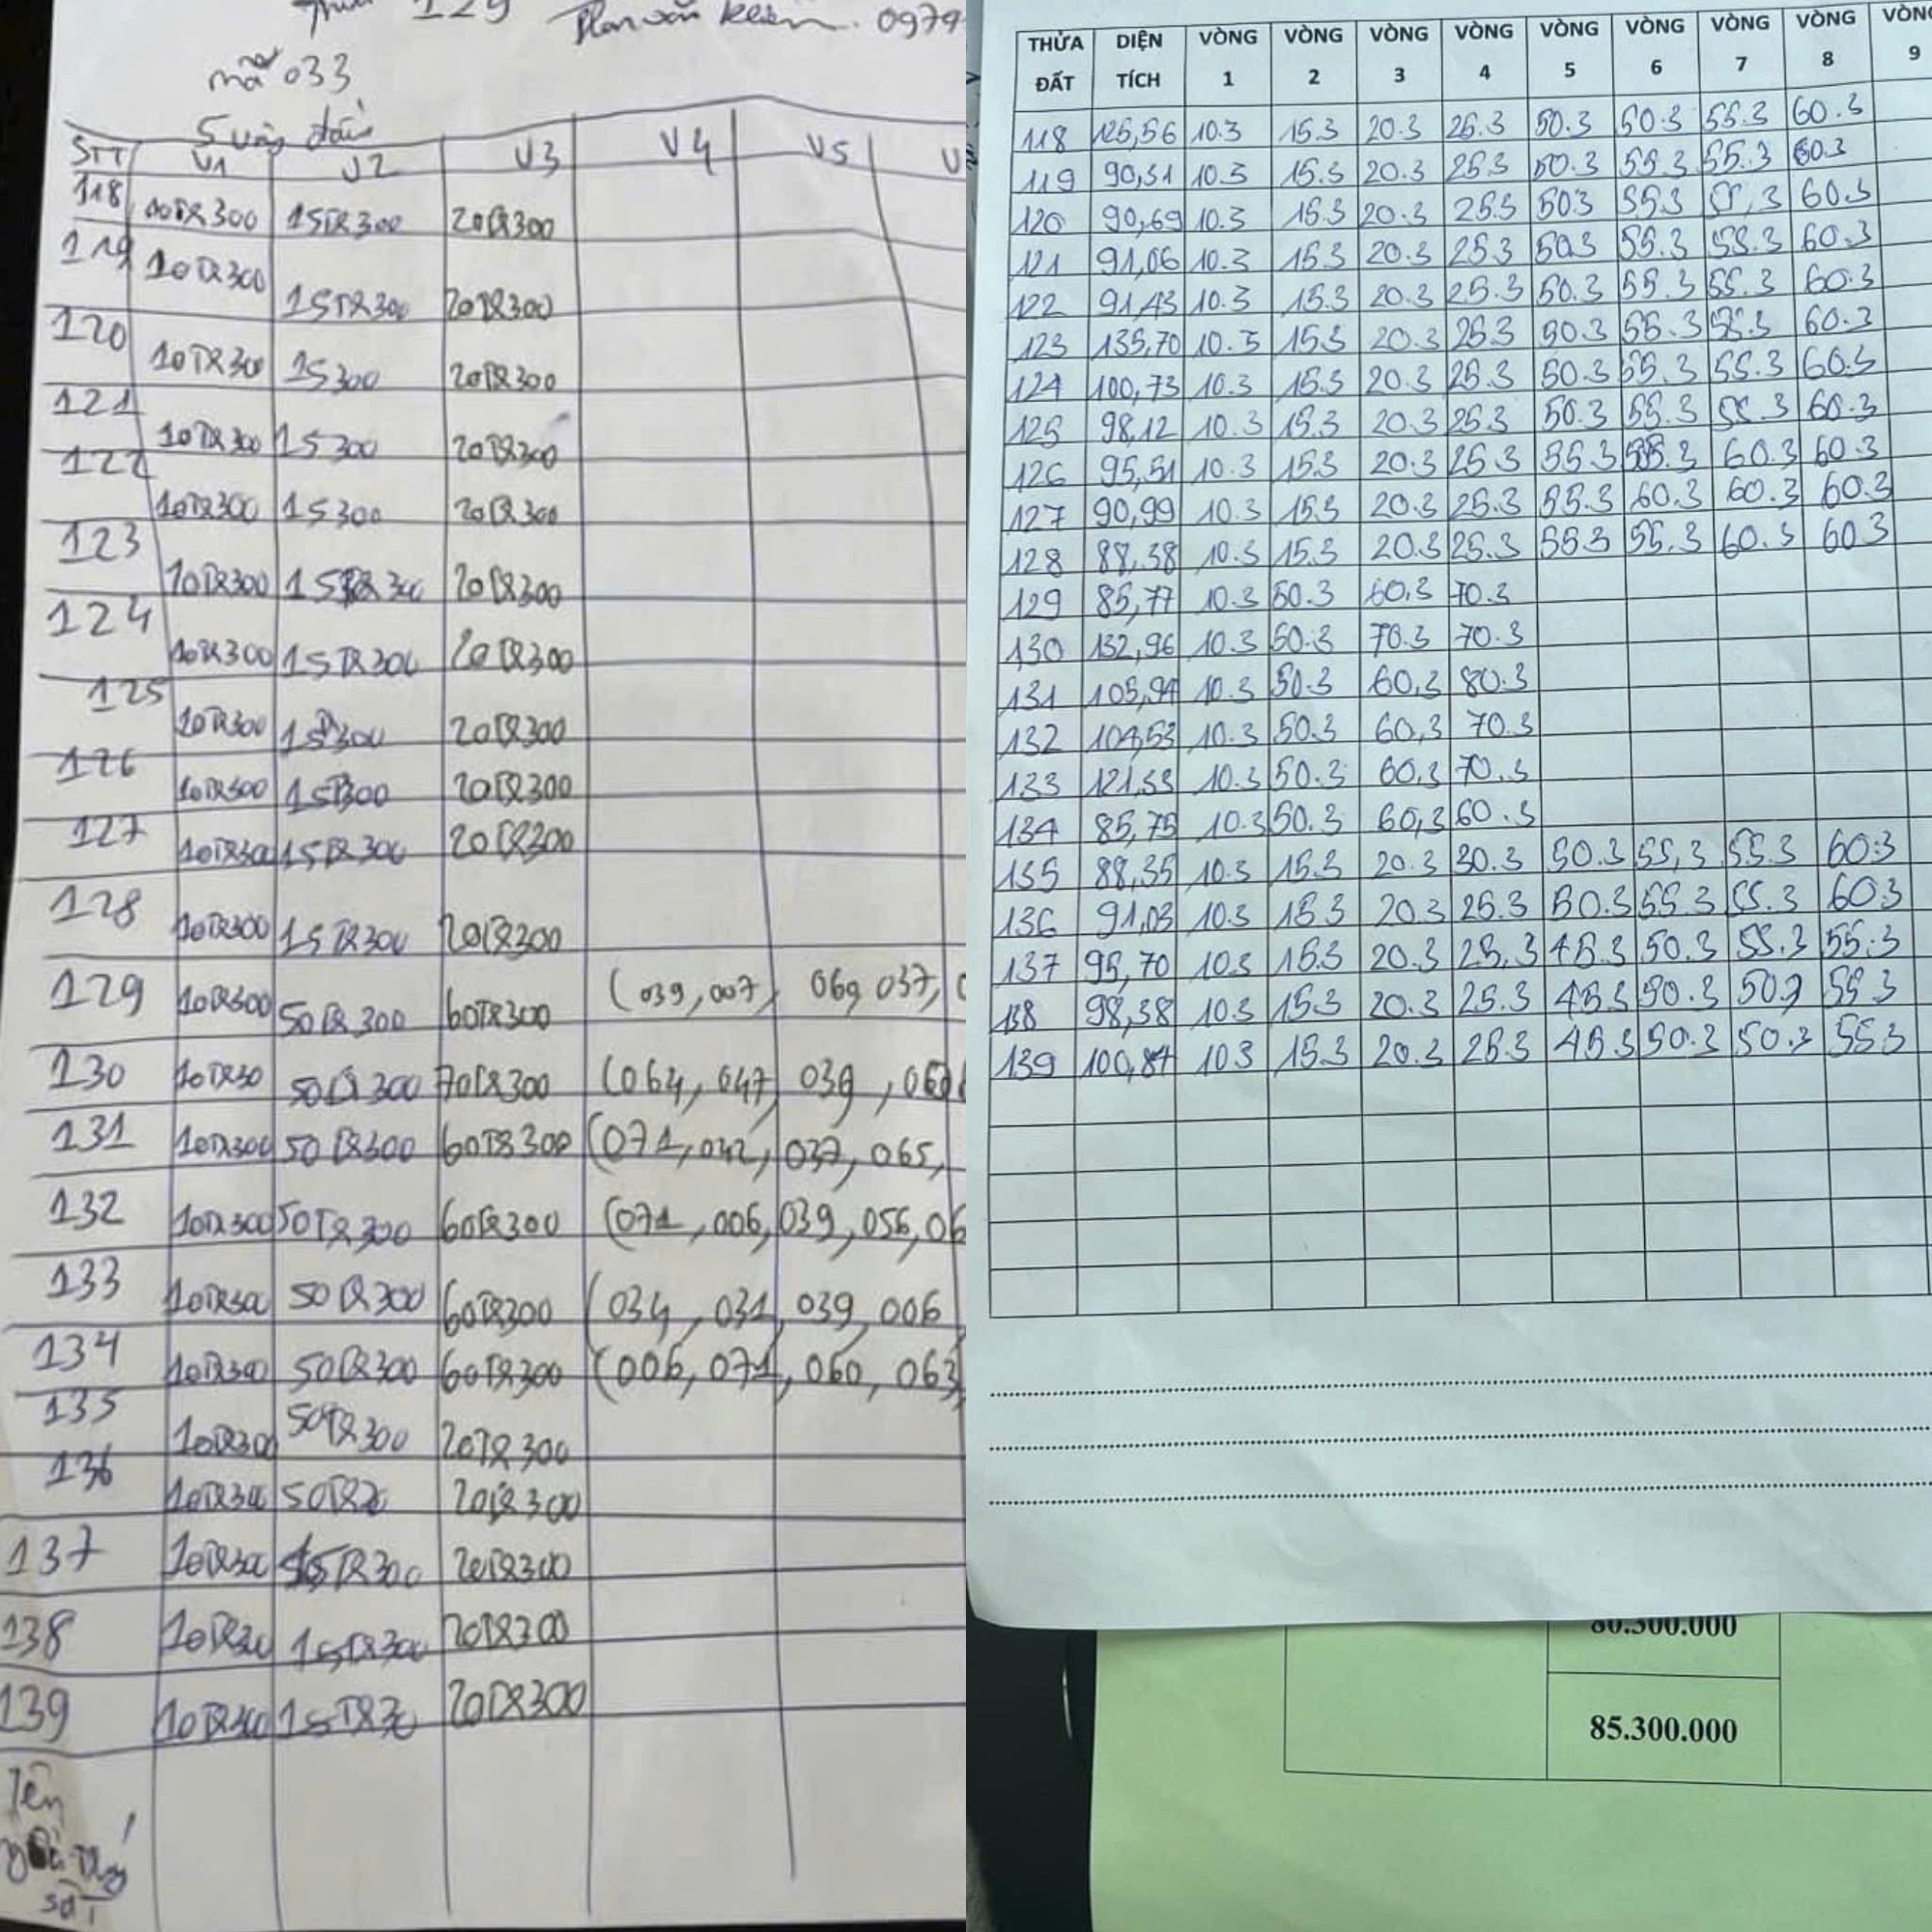 129 Phan văn kiên. 0979
mã 033
5 vòng đấu
STT V1 V2 V3 V4 V5 V
118 10TR300 15TR300 20TR300
119 10TR300 15TR300 20TR300
120 10TR300 15300 20TR300
121 10TR300 15300 20TR300
122 10TR300 15300 20TR300
123 10TR300 15TR300 20TR300
124 10TR300 15TR300 20TR300
125 10TR300 15TR300 20TR300
126 10TR300 15TR300 20TR300
127 10TR300 15TR300 20TR300
128 10TR300 15TR300 20TR300
129 10TR300 50TR300 60TR300 (039,007, 069 037,
130 10TR30 50TR300 70TR300 (064,047, 039,060
131 10TR300 50TR300 60TR300 (071,042,037,065,
132 10TR300 50TR300 60TR300 (071,006,039,056,06
133 10TR300 50TR300 60TR300 (034,031,039,006
134 10TR300 50TR300 60TR300 (006,071,060,063,
135 10TR300 50TR300 20TR300
136 10TR300 50TR 20TR300
137 10TR300 15TR300 20TR300
138 10TR30 15TR300 20TR300
139 10TR300 15TR30 20TR300
Tên
THỬA ĐẤT DIỆN TÍCH VÒNG 1 VÒNG 2 VÒNG 3 VÒNG 4 VÒNG 5 VÒNG 6 VÒNG 7 VÒNG 8 VÒNG 9
118 125,56 10.3 15.3 20.3 25.3 50.3 50.3 55.3 60.3
119 90,31 10.3 15.3 20.3 25.3 50.3 55.3 55.3 60.3
120 90,69 10.3 15.3 20.3 25.3 503 553 55,3 60.3
121 91,06 10.3 15.3 20.3 25.3 50.3 55.3 55.3 60.3
122 91,43 10.3 15.3 20.3 25.3 50.3 55.3 55.3 60.3
123 135,70 10.3 15.3 20.3 25.3 50.3 55.3 55.3 60.3
124 100,73 10.3 15.3 20.3 25.3 50.3 55.3 55.3 60.3
125 98,12 10.3 15.3 20.3 25.3 50.3 55.3 55.3 60.3
126 95,51 10.3 15.3 20.3 25.3 55.3 55.3 60.3 60.3
127 90,99 10.3 15.3 20.3 25.3 55.3 60.3 60.3 60.3
128 88,38 10.3 15.3 20.3 25.3 55.3 55.3 60.3 60.3
129 85,77 10.3 50.3 60.3 70.3
130 132,96 10.3 50.3 70.3 70.3
131 105,94 10.3 50.3 60,3 80.3
132 104,53 10.3 50.3 60,3 70.3
133 121,53 10.3 50.3 60.3 70.3
134 85,75 10.3 50.3 60,3 60.3
135 88,35 10.3 15.3 20.3 30.3 50.3 55,3 55.3 60.3
136 91,03 10.3 15.3 20.3 25.3 50.3 55.3 55.3 60.3
137 95,70 10.3 15.3 20.3 25,3 45.3 50.3 55.3 55.3
138 98,38 10.3 15.3 20.3 25.3 45.3 50.3 50.3 55.3
139 100,87 10.3 15.3 20.3 25.3 45.3 50.3 50.3 55.3
80.300.000
85.300.000